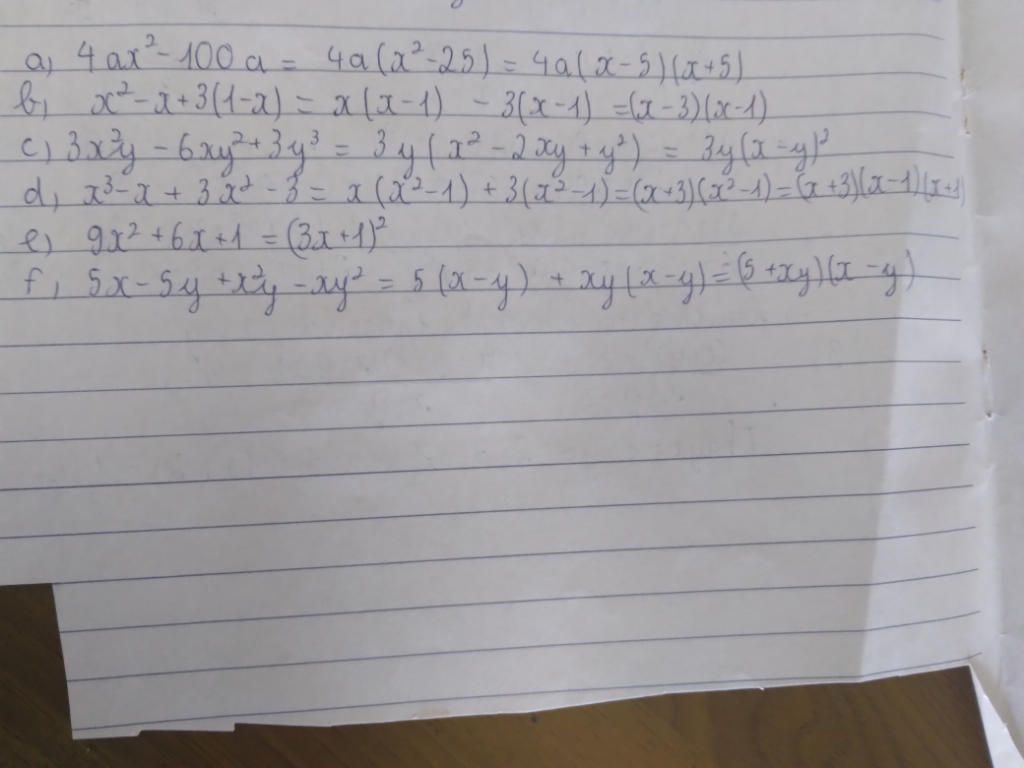 a) 4ax² - 100a = 4a(x² - 25) = 4a(x - 5)(x + 5)
b) x² - x + 3(1 - x) = x(x - 1) - 3(x - 1) = (x - 3)(x - 1)
c) 3x²y - 6xy² + 3y³ = 3y(x² - 2xy + y²) = 3y(x - y)²
d) x³ - x + 3x² - 3 = x(x² - 1) + 3(x² - 1) = (x + 3)(x² - 1) = (x + 3)(x - 1)(x + 1)
e) 9x² + 6x + 1 = (3x + 1)²
f) 5x - 5y + x²y - xy² = 5(x - y) + xy(x - y) = (5 + xy)(x - y)